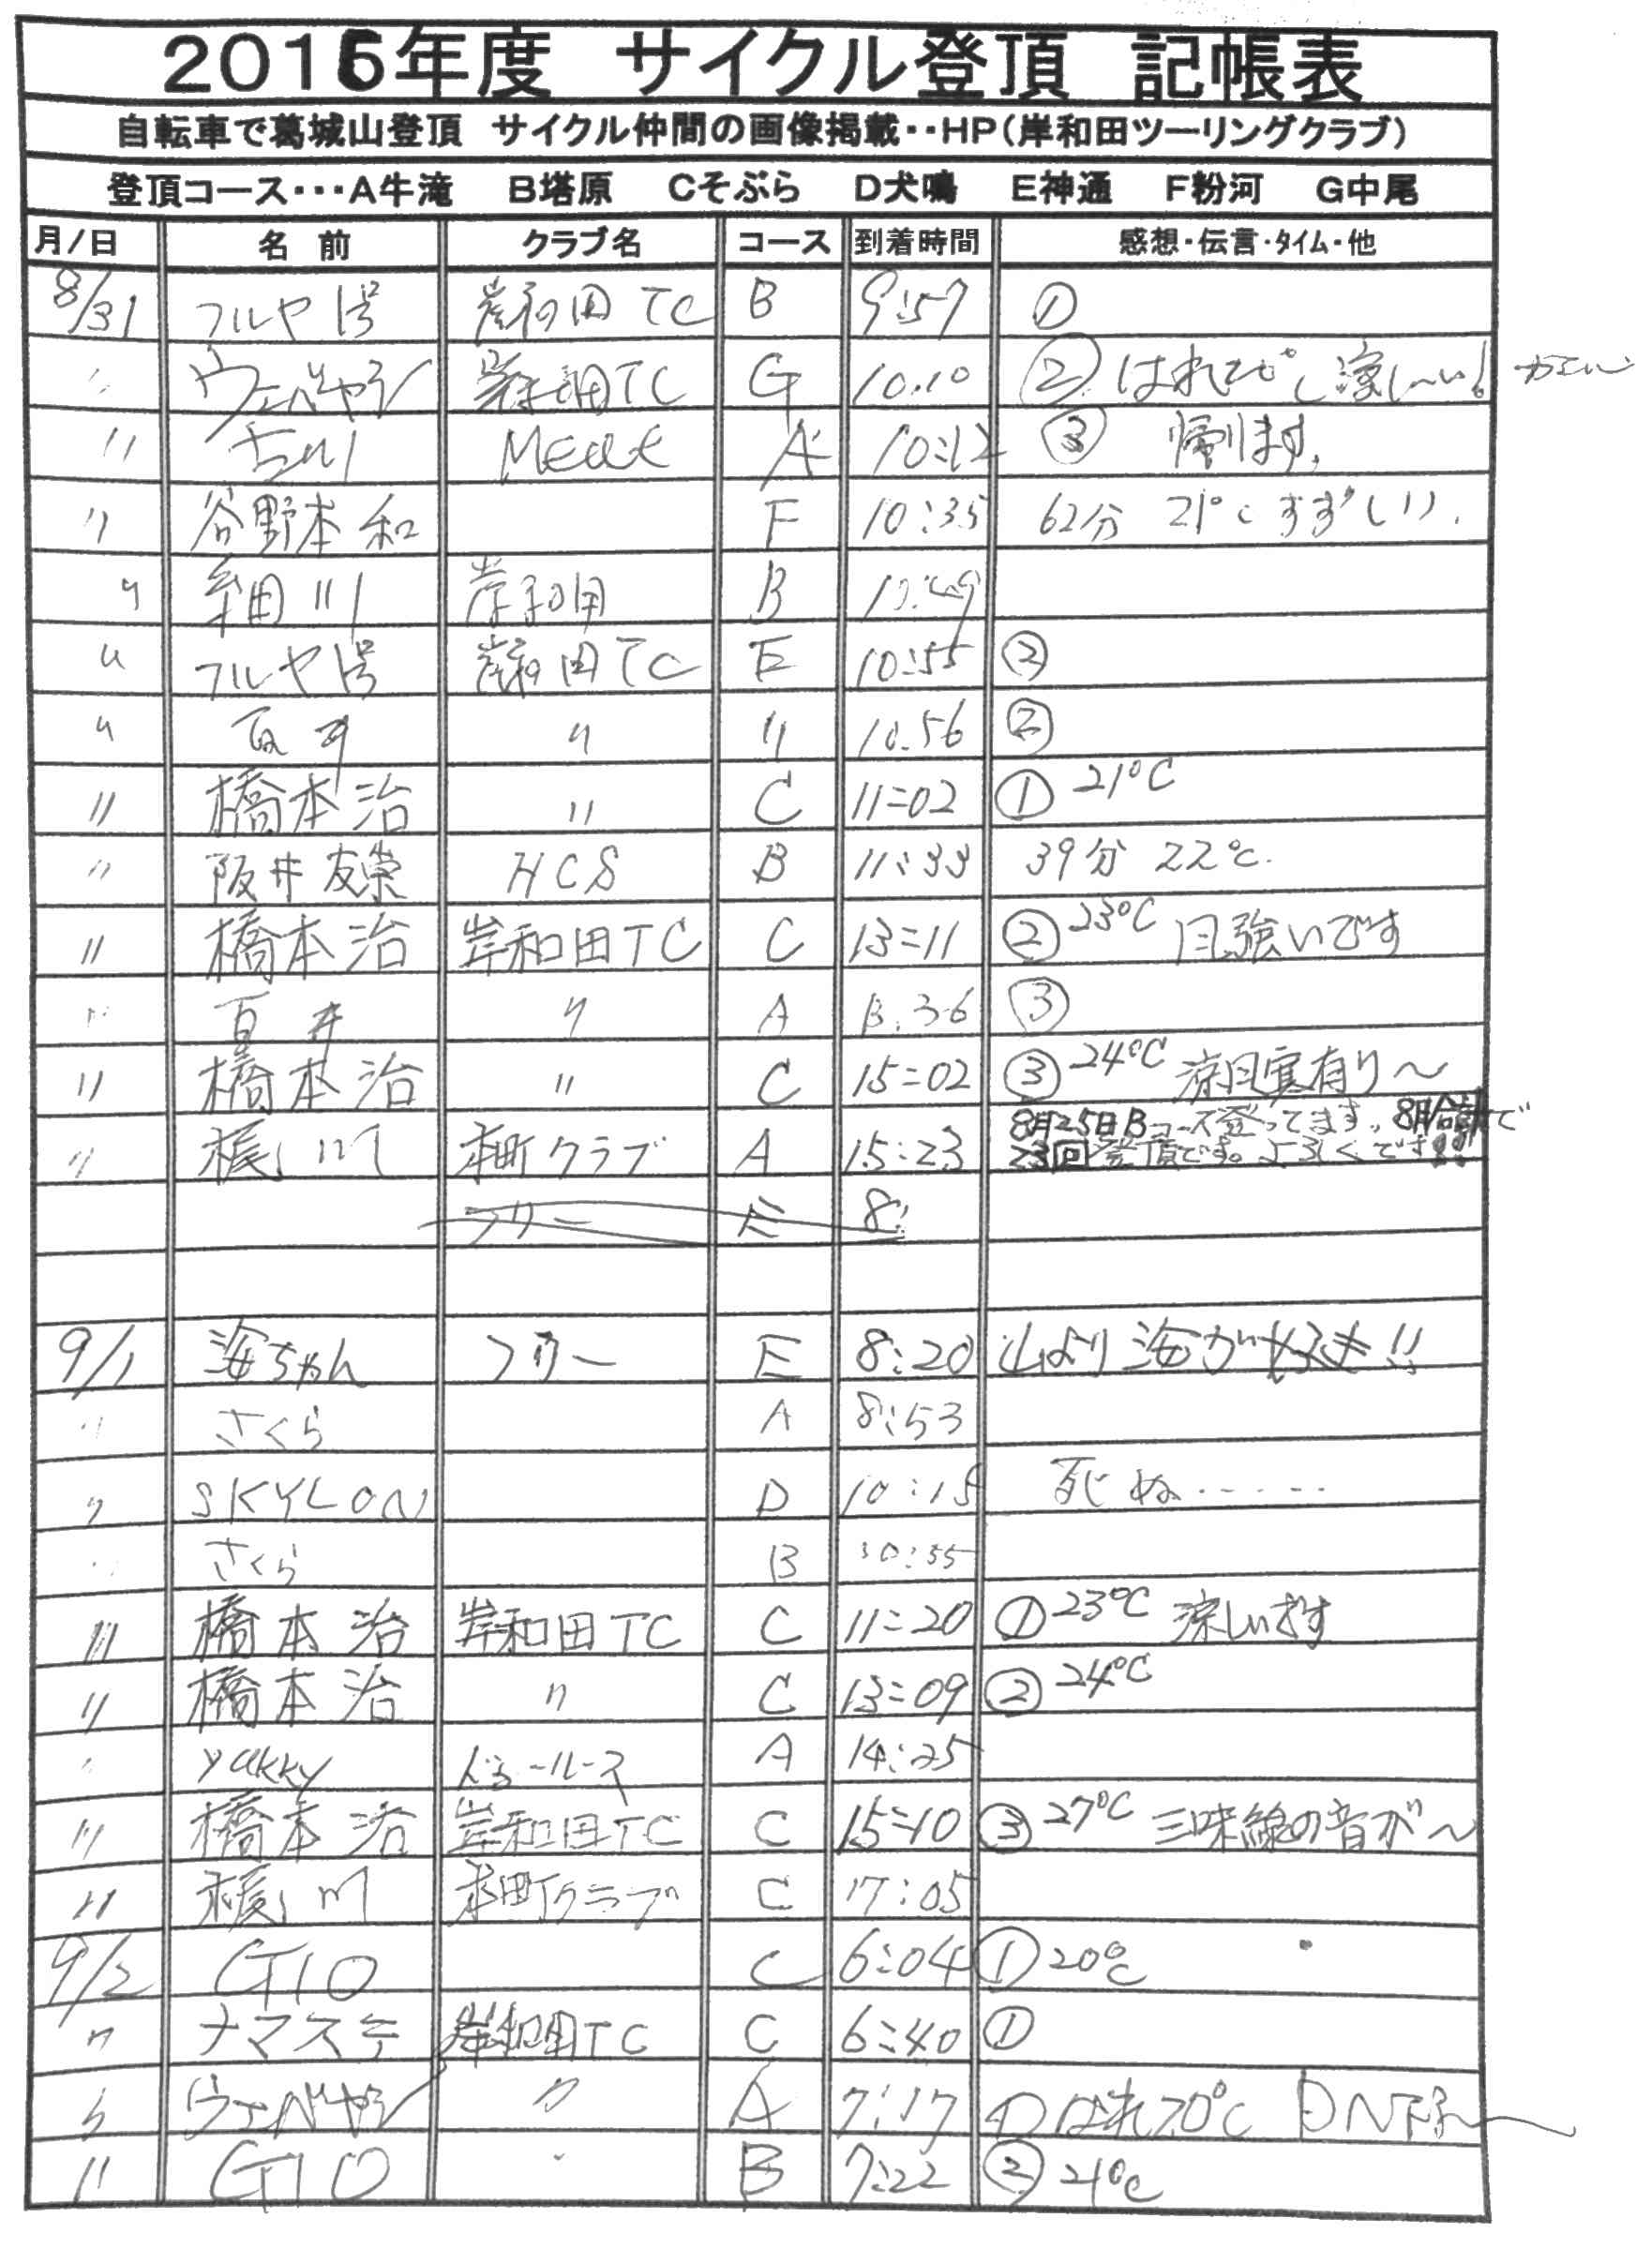 2016年度 サイクル登頂 記帳表
自転車で葛城山登頂 サイクル仲間の画像掲載‥HP(岸和田ツーリングクラブ)
登頂コース･･･A牛滝 B塔原 Cそぶら D犬鳴 E神通 F粉河 G中尾
月/日 名前 クラブ名 コース 到着時間 感想・伝言・タイム・他
8/31 フルヤ1号 岸和田TC B 9:57 ①
〃 ウェパヤシ 岸和田TC G 10.10 ② はれ 涼し〜い!
〃 古川 A 10:12 ③ 帰ります。
〃 谷野本和 F 10:35 62分 21℃ すずしい.
〃 細川 岸和田 B 10:49
〃 フルヤ1号 岸和田TC E 10:55 ②
〃 百井 〃 〃 10.56 ②
〃 橋本治 〃 C 11:02 ① 21℃
〃 阪井友崇 HCS B 11:33 39分 22℃.
〃 橋本治 岸和田TC C 13:11 ② 23℃ 風強いです
〃 百井 〃 A 13.36 ③
〃 橋本治 〃 C 15:02 ③ 24℃ 涼風実有り〜
〃 榎川 本町クラブ A 15:23 8月25日Bコース登ってます。8月合計で
23回登頂です。よろしくです!!
フリー E 8:
9/1 海ちゃん フリー E 8:20 山より海が好き!!
〃 さくら A 8:53
〃 SKYLON D 10:15 死ぬ‥‥‥
〃 さくら B 10:55
〃 橋本治 岸和田TC C 11:20 ① 23℃ 涼しいです
〃 橋本治 〃 C 13:09 ② 24℃
〃 yukky A 14:25
〃 橋本治 岸和田TC C 15:10 ③ 27℃ 三味線の音が〜
〃 榎川 本町クラブ C 17:05
9/2 GIO C 6:04 ① 20℃
〃 ナマステ 岸和田TC C 6:40 ①
〃 ウェパヤシ 〃 A 7:17 ① はれ20℃
〃 GIO B 7:22 ② 21℃